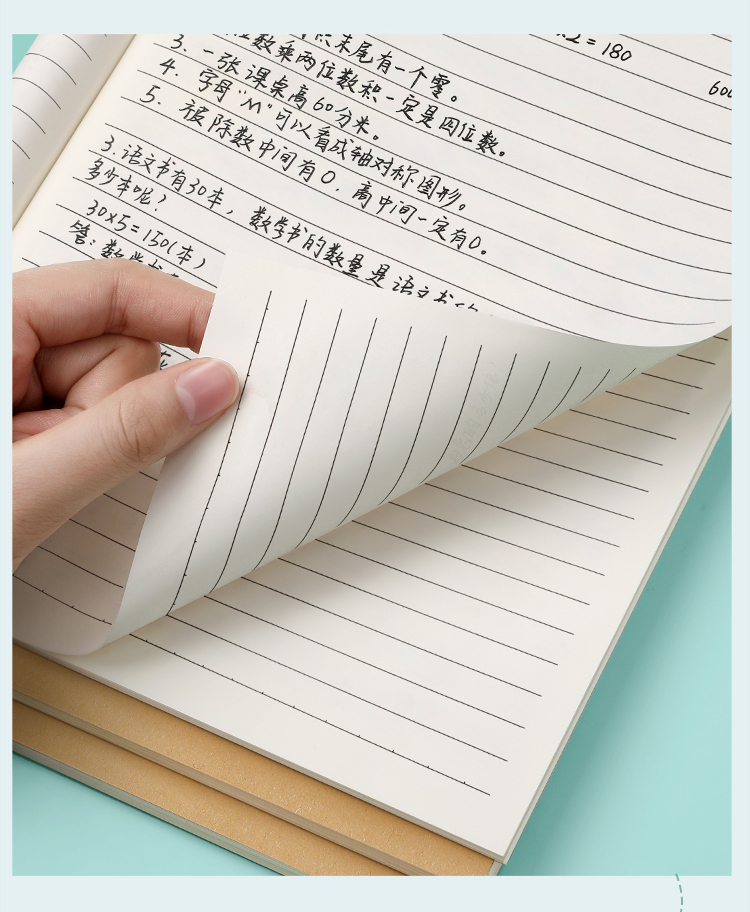 ×2=180
600
末尾有一个零。
3. 位数乘两位数积一定是四位数。
4. 一张课桌高60分米。
5. 字母"M"可以看成轴对称图形。
被除数中间有0，商中间一定有0。
3.语文书有30本，数学书的数量是语文书的
多少本呢？
30×5=150(本)
答：数学书